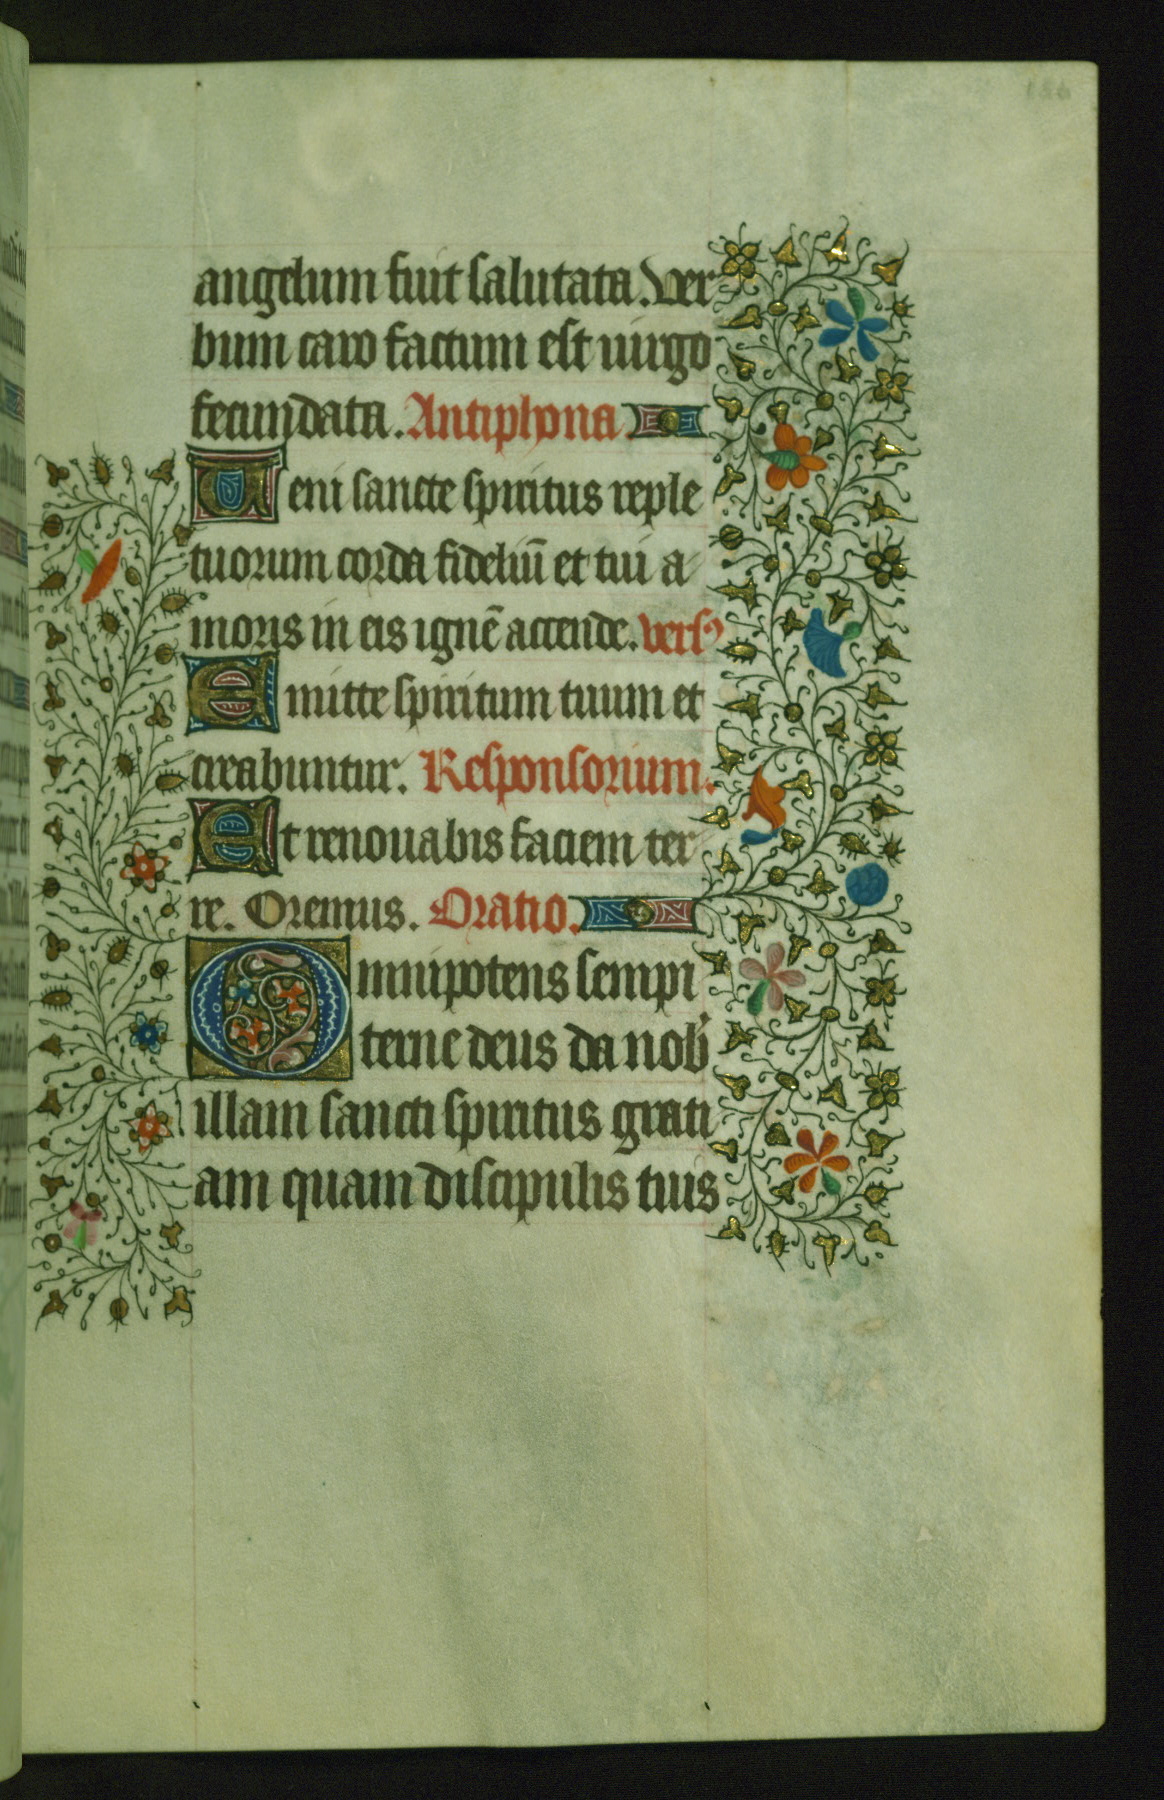 angelum fuit salutata. Ver
bum caro factum est uirgo
fecundata. Antiphona.
Ueni sancte spiritus reple
tuorum corda fideliū et tui a
moris in eis ignē accende. versꝰ
Emitte spiritum tuum et
creabuntur. Responsorium.
Et renouabis faciem ter
re. Oremus. Oratio.
Omnipotens sempi
terne deus da nob'
illam sancti spiritus grati
am quam discipulis tuis